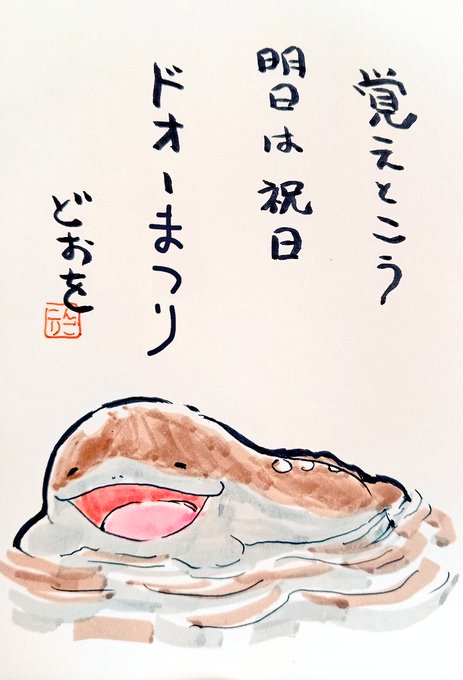 覚えとこう
明日は祝日
ドオーまつり
どおを